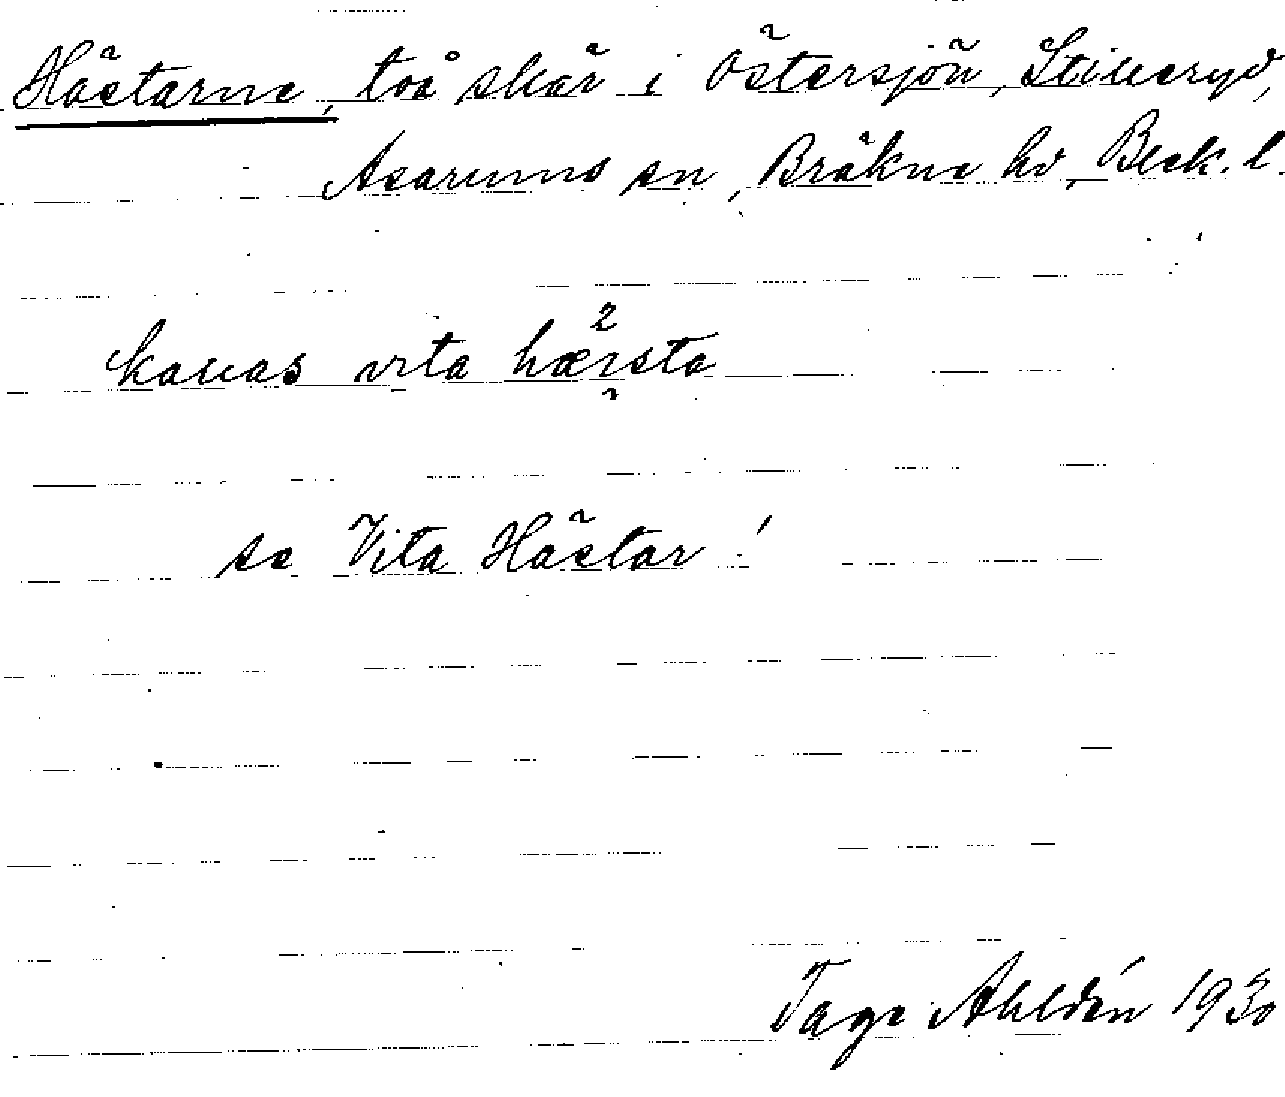 Hästarne, två skär i Östersjön, Stilleryd,
Asarums sn, Bräkne hd, Blek. l.
kallas vita hærsta
se Vita Hästar!
Tage Ahldén 1930